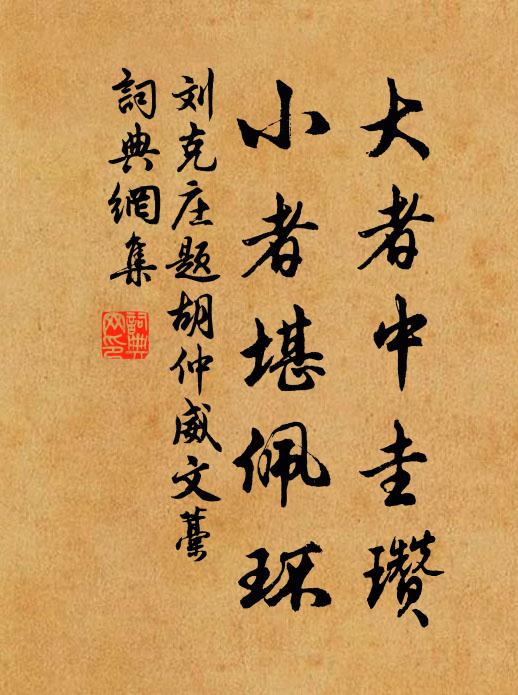 大者中圭瓚
小者堪佩环
刘克庄题胡仲威文藁
詞典網集
詞典网印